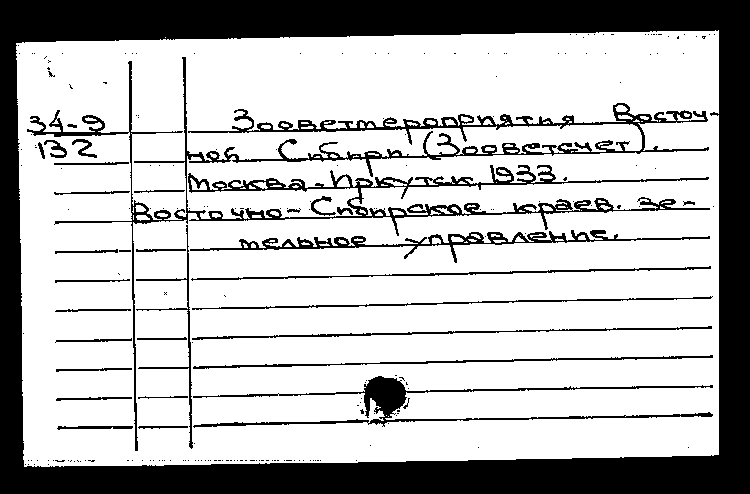 34-9
132
Зооветмероприятия Восточ-
ной Сибири (Зооветсчет).
Москва-Иркутск, 1933.
Восточно-Сибирское краев. зе-
мельное управление.